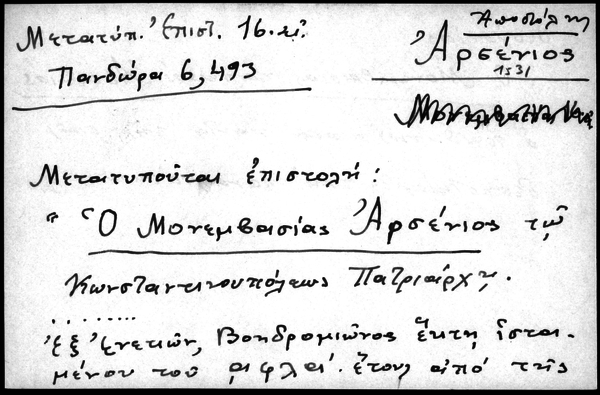 Μετατύπ. Ἐπιστ. 16. αἰ.
Πανδώρα 6, 493
Ἀποστόλη
Ἀρσένιος
1531
Μετατυποῦται ἐπιστολή:
" Ὁ Μονεμβασίας Ἀρσένιος τῷ
Κωνσταντινουπόλεως Πατριάρχῃ.
. . . . . . . .
Ἐξ Ἐνετιῶν, Βοηδρομιῶνος ἕκτῃ ἱστα-
μένου τοῦ αφλα΄. ἔτους ἀπό τῆς